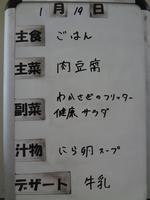 1月19日
主食 ごはん
主菜 肉豆腐
副菜 わかさぎのフリッター
健康サラダ
汁物 にら卵スープ
デザート 牛乳